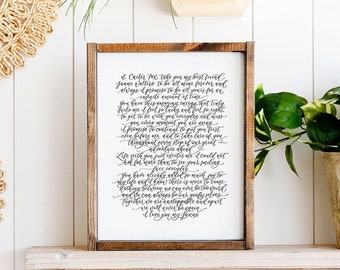 I, Carter Fox, take you my best friend
Joanne Walters, to be all mine forever and
always. I promise to be all yours for an
infinite amount of time.
You have this amazing energy that truly
fuels me. I feel so lucky and feel so right
to get to be with you everyday and miss
you every moment you are away.
I promise to continue to put you first
even before me, and to take care of you
throughout every step of our great
adventure ahead.
Life with you just excites me. I could not
ask for more than to see your
face everyday.
You have already added so much joy to
my life and I know there is more to come.
Nothing between us can ever be too weird
and we can always be our goofy selves.
Together, we are unstoppable and apart
we will never be again.
I love you my